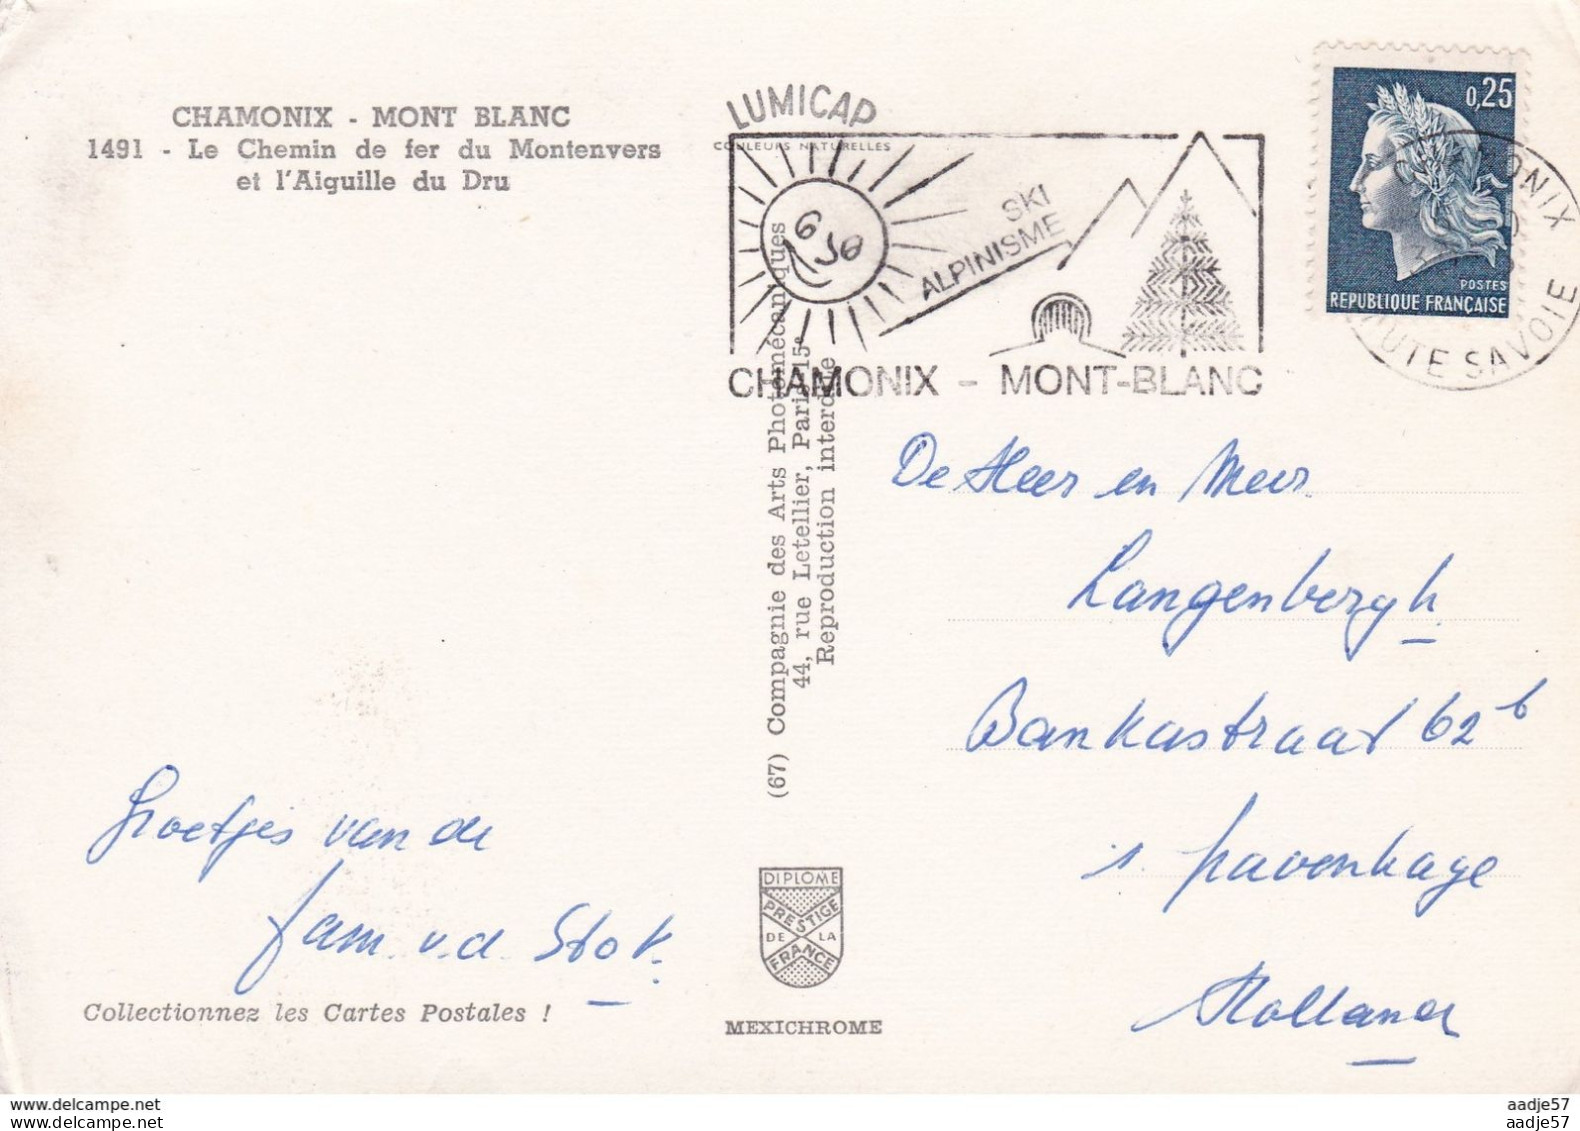 CHAMONIX - MONT BLANC
1491 - Le Chemin de fer du Montenvers
et l'Aiguille du Dru
LUMICAP
COULEURS NATURELLES
SKI
ALPINISME
CHAMONIX - MONT-BLANC
0,25
POSTES
REPUBLIQUE FRANÇAISE
CHAMONIX
HAUTE SAVOIE
(67) Compagnie des Arts Photomécaniques
44, rue Letellier, Paris-15e
Reproduction interdite
De Heer en Mevr.
Langenbergh
Bankastraat 62b
s. Gravenhage
Holland
Groetjes van de
fam. v.d. Stok.
DIPLOME
PRESTIGE
DE LA
FRANCE
Collectionnez les Cartes Postales !
MEXICHROME
www.delcampe.net
www.delcampe.net
aadje57
aadje57